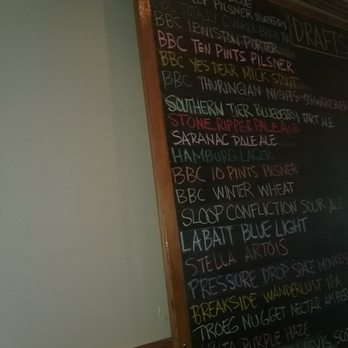 PILSNER
DRAFTS
BBC LEWISTON PORTER
BBC TEN PINTS PILSNER
BBC YES DEAR MILK STOUT
BBC THURINGIAN NIGHTS SCHWARZBIER
SOUTHERN TIER BLUEBERRY TART ALE
STONE RIPPER PALE ALE
SARANAC PALE ALE
HAMBURG LAGER
BBC 10 PINTS PILSNER
BBC WINTER WHEAT
SLOOP CONFLICTION SOUR ALE
LABATT BLUE LIGHT
STELLA ARTOIS
PRESSURE DROP SPACE MONKEY
BREAKSIDE WANDERLUST IPA
TROEG NUGGET NECTAR AMBER
PURPLE HAZE